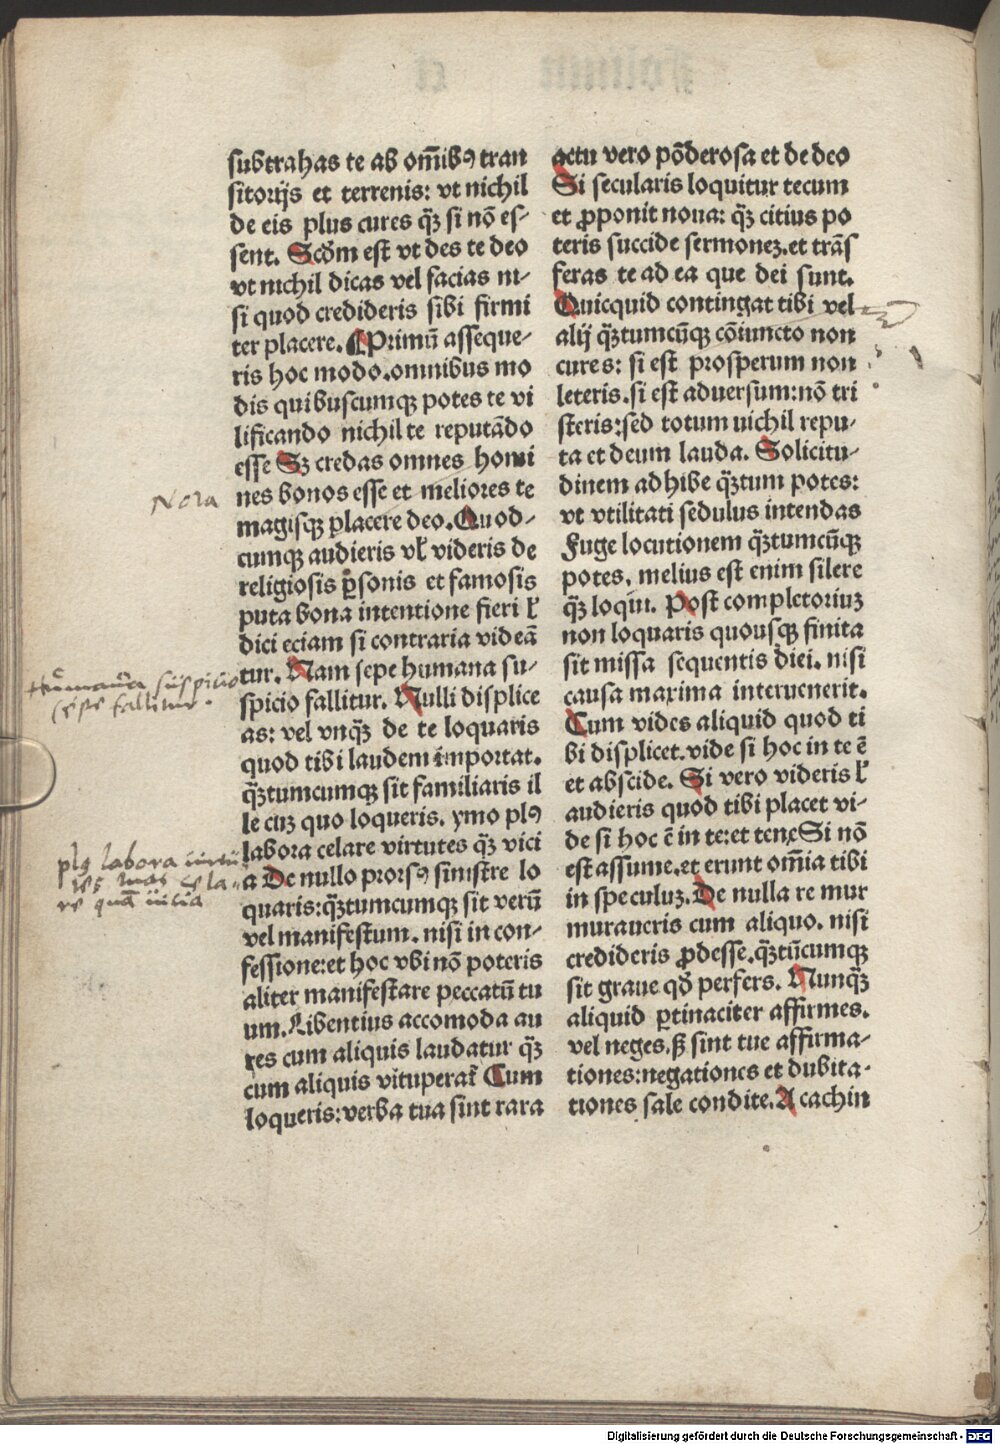 subtrahas te ab om̄ibꝰ tran
sitorijs et terrenis: vt nichil
de eis plus cures qꝫ̄ si nō es-
sent. Scd̄m est vt des te deo
vt nichil dicas vel facias ni-
si quod credideris sibi firmi
ter placere. ¶Primū asseque-
ris hoc modo.omnibus mo
dis quibuscumqꝫ potes te vi
lificando nichil te reputādo
esse Sꝫ credas omnes homi
nes bonos esse et meliores te
magisqꝫ placere deo.Quod-
cumqꝫ audieris vl̓ videris de
religiosis ꝑsonis et famosis
puta bona intentione fieri l̓
dici eciam si contraria videā
tur. Nam sepe humana su-
spicio fallitur. Nulli displice
as: vel vnqꝫ̄ de te loquaris
quod tibi laudem importat.
qꝫ̄tumcumqꝫ sit familiaris il
le cuꝫ quo loqueris. ymo plꝰ
labora celare virtutes qꝫ̄ vici
a De nullo prorsꝰ sinistre lo
quaris:qꝫ̄tumcumqꝫ sit verū
vel manifestum. nisi in con-
fessione:et hoc vbi nō poteris
aliter manifestare peccatū tu
um. Libentius accomoda au
res cum aliquis laudatur qꝫ̄
cum aliquis vituperat̄ Cum
loqueris:verba tua sint rara
actu vero pōderosa et de deo
Si secularis loquitur tecum
et ꝓponit noua: qꝫ̄ citius po
teris succide sermoneꝫ.et trāſ
feras te ad ea que dei sunt.
Quicquid contingat tibi vel
alij qꝫ̄tumcūqꝫ cōiuncto non
cures: si est prosperum non
leteris.si est aduersum:nō tri
steris:sed totum nichil repu-
ta et deum lauda. Solicitu-
dinem adhibe qꝫ̄tum potes:
vt vtilitati sedulus intendas
Fuge locutionem qꝫ̄tumcūqꝫ
potes, melius est enim silere
qꝫ̄ loqui. Post completoriuꝫ
non loquaris quousqꝫ finita
sit missa sequentis diei. nisi
causa maxima interuenerit.
Cum vides aliquid quod ti
bi displicet.vide si hoc in te ē
et abscide. Si vero videris l̓
audieris quod tibi placet vi-
de si hoc ē in te:et tene Si nō
est assume.et erunt om̄ia tibi
in speculuꝫ. De nulla re mur
muraueris cum aliquo. nisi
credideris ꝓdesse.qꝫ̄tūcumqꝫ
sit graue qd̄ perfers. Nunqꝫ̄
aliquid ꝑtinaciter affirmes.
vel neges.sꝫ sint tue affirma-
tiones:negationes et dubita-
tiones sale condite.A cachin
Nota
Humana suspicio
sepe fallitur.
plꝰ labora virtu
tes tuas cela-
re quā vicia
Digitalisierung gefördert durch die Deutsche Forschungsgemeinschaft - DFG